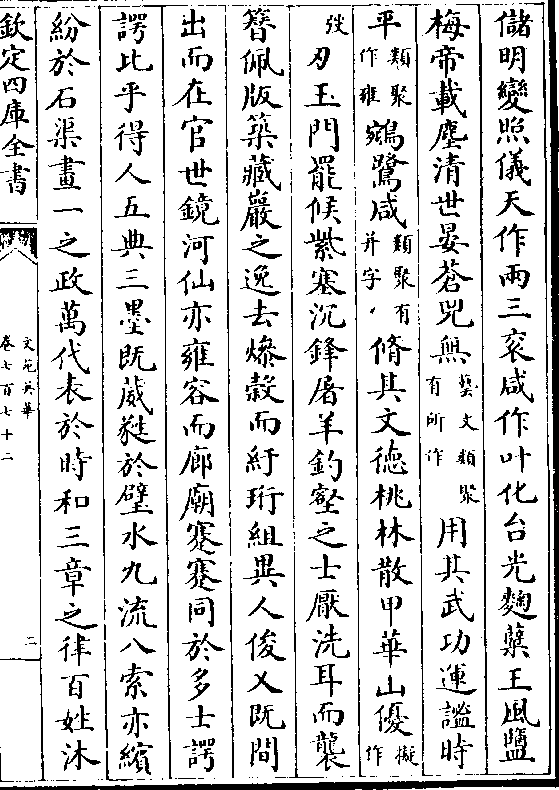 儲明變照儀天作兩三衮咸作叶化台光麴蘖王風鹽
梅帝載塵清世晏蒼兕無藝文類聚有所作用其武功運謐時
平類聚作雍鵷鷺咸類聚有并字脩其文德桃林散甲華山優擬作
弢刃玉門罷候紫塞沉鋒屠羊釣壑之士厭洗耳而襲
簪佩版築藏巖之逸去燣縠而紆珩組異人俊乂既間
出而在官世鏡河仙亦雍容而廊廟蹇蹇同於多士諤
諤比乎得人五典三墨既葳蕤於壁水九流八索亦繽
紛於石渠畫一之政萬代表於時和三章之律百姓沐
欽定四庫全書
文苑英華
卷七百七十二
二